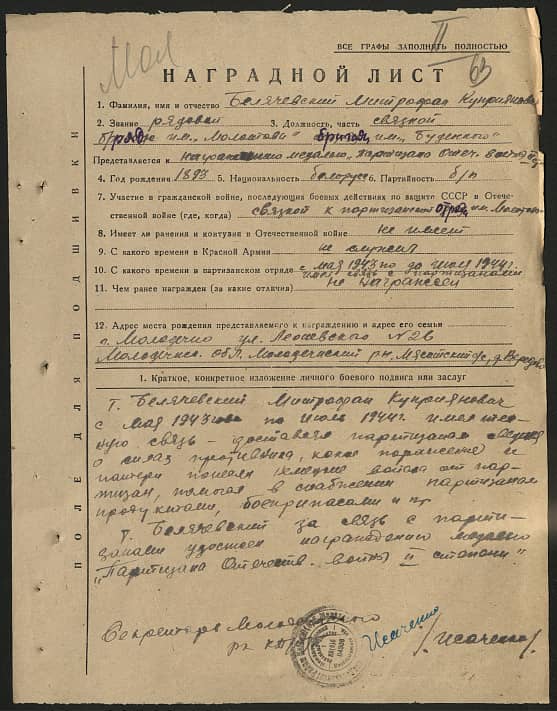 Мол
II
63
ВСЕ ГРАФЫ ЗАПОЛНЯТЬ ПОЛНОСТЬЮ
НАГРАДНОЙ ЛИСТ
1. Фамилия, имя и отчество Белячевский Митрофан Куприянович
2. Звание рядовой 3. Должность, часть связной
отряда им. Молотова бригады им. Буденного
Представляется к медалью, партизану Отеч. войны
4. Год рождения 1893 5. Национальность белорус 6. Партийность б/п
7. Участие в гражданской войне, последующих боевых действиях по защите СССР в Отече-
ственной войне (где, когда) связной к партизанской отряд им. Молотова
8. Имеет ли ранения и контузии в Отечественной войне не имеет
9. С какого времени в Красной Армии не служил
10. С какого времени в партизанском отряде с мая 1943 по июля 1944 г.
имел связь с партизанами
11. Чем ранее награжден (за какие отличия) не награжден
12. Адрес места рождения представляемого к награждению и адрес его семьи
г. Молодечно ул. № 26
Молодечнен. обл. Молодечнский р-н, с/с, д.
1. Краткое, конкретное изложение личного боевого подвига или заслуг
Т. Белячевский Митрофан Куприянович
с мая 1943 по июль 1944 г. имел тес-
ную связь - доставлял партизанам
о силах противника, какое поражение и
потери понесли войска от пар-
тизан, помогал в снабжении партизанам
продуктами, боеприпасами и пр.
Т. Белячевский за связь с парти-
занами удостоен награждению медалью
„Партизана Отечеств. войны II степени"
Секретарь Молодечненского
рк КП(б)Б Исаченко /Исаченко/
ПОЛЕ ДЛЯ ПОДШИВКИ